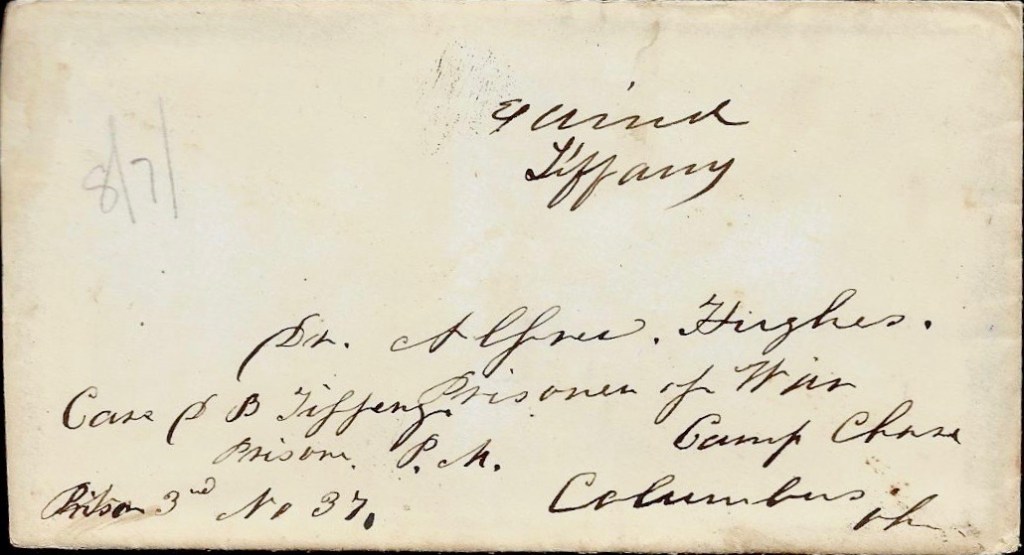 Tiffany
8/7/
Dr. Alfred. Hughes.
Prisoner of War
Care D B Tiffany.
Camp Chase
Prison. P. M.
Columbus
Prison 3rd No 37,
oh